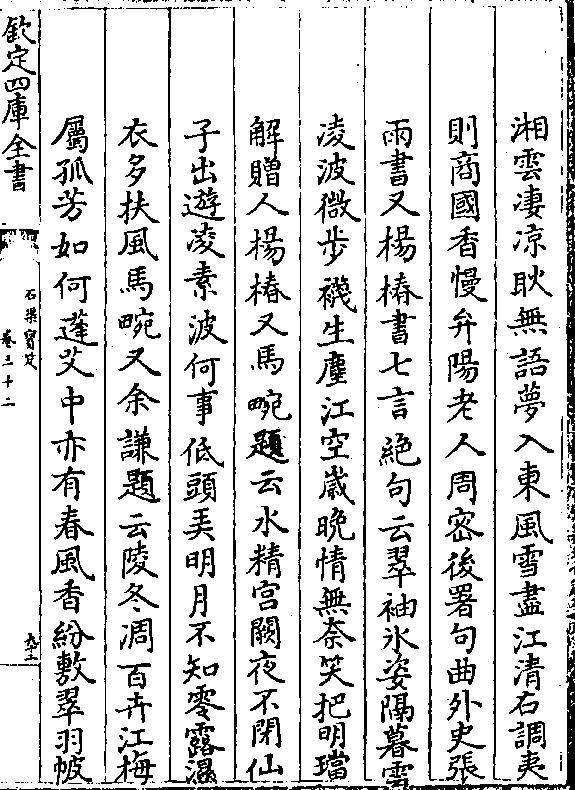 湘雲凄凉耿無語夢入東風雪盡江清右調夷
則商國香慢弁陽老人周密後署句曲外史張
雨書又楊椿書七言絶句云翠袖氷姿隔暮雲
凌波微步襪生塵江空歲晚情無奈笑把明璫
解贈人楊椿又馬畹題云水精宫闕夜不閉仙
子出遊凌素波何事低頭弄明月不知零露濕
衣多扶風馬畹又余謙題云陵冬凋百卉江梅
屬孤芳如何蓬艾中亦有春風香紛敷翠羽帔
欽定四庫全書
石渠寳笈
卷三十二